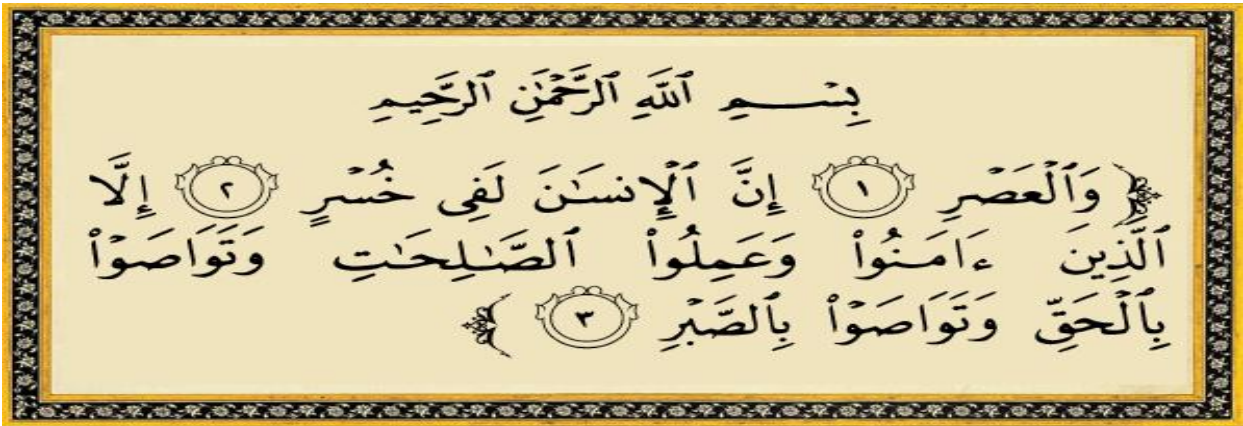 بِسْمِ ٱللَّهِ ٱلرَّحْمَٰنِ ٱلرَّحِيمِ
﴿ وَٱلْعَصْرِ ١ إِنَّ ٱلْإِنسَـٰنَ لَفِى خُسْرٍ ٢ إِلَّا
ٱلَّذِينَ ءَامَنُوا۟ وَعَمِلُوا۟ ٱلصَّـٰلِحَـٰتِ وَتَوَاصَوْا۟
بِٱلْحَقِّ وَتَوَاصَوْا۟ بِٱلصَّبْرِ ٣ ﴾